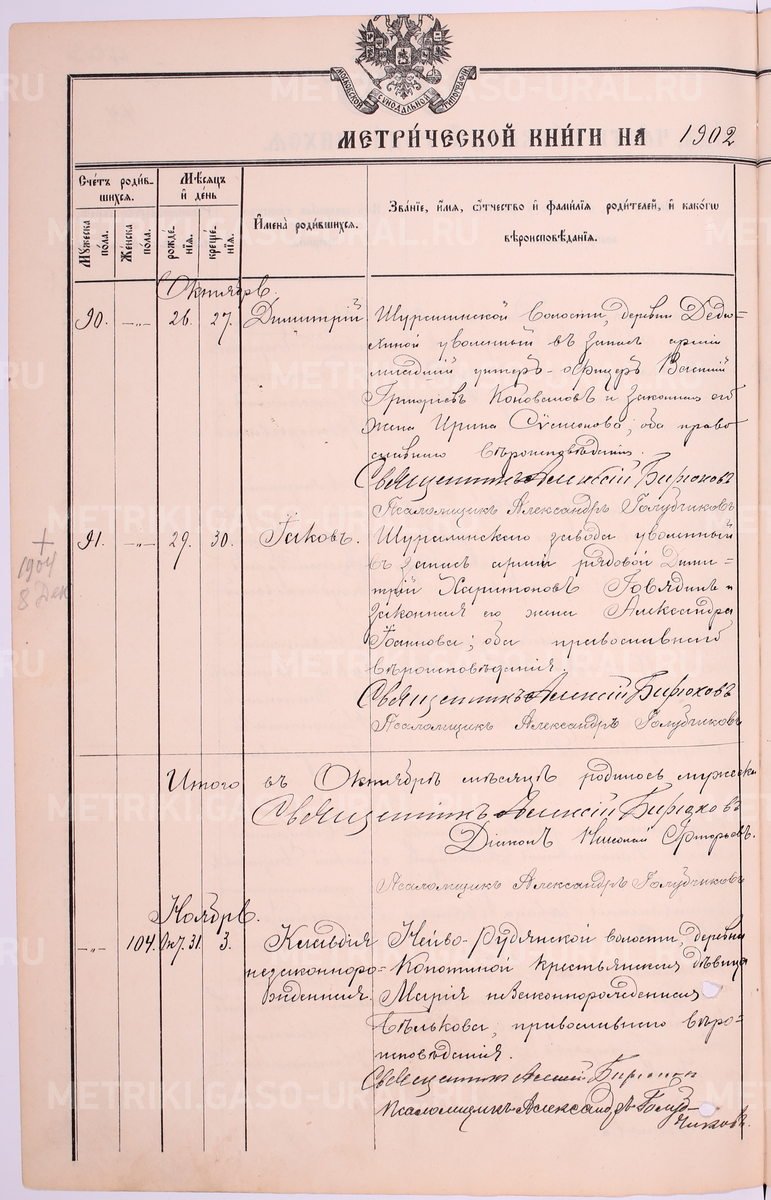 МОСКОВСКОЙ СѴНОДАЛЬНОЙ ТИПОГРАФІИ
МЕТРИ́ЧЕСКОЙ КНИ́ГИ НА 1902
Сче́тъ роди́вшихся.
Мꙋ́жеска по́ла.
Же́нска по́ла.
Мѣ́сяцъ и де́нь
рожде́нїя.
креще́нїя.
И҆мена̀ роди́вшихся.
Зва́нїе, и҆́мя, ѻ҆́тчество и҆ фами́лїя роди́телей, и҆ како́гѡ вѣроисповѣ́данїя.
Октябрь.
90. —„— 26. 27. Димитрій. Шуралинской волости, деревни
уволенный въ запасъ арміи
младшій унтеръ-офицеръ Василій
Григорьевъ Коноваловъ и законная его
жена Ирина Сѵмеонова; оба право-
славнаго вѣроисповѣданія.
Священникъ Алексій Бирюковъ
Псаломщикъ Александръ Голубчиковъ
91. —„— 29. 30. Іаковъ. Шуралинскаго завода уволенный
въ запасъ арміи рядовой Дими-
трій Харитоновъ Говядинъ и
законная его жена Александра
Іоаннова; оба православнаго
вѣроисповѣданія.
Священникъ Алексій Бирюковъ
Псаломщикъ Александръ Голубчиковъ
+
1904
8 Дек
Итого въ Октябрѣ мѣсяцѣ родилось мужеска
Священникъ Алексій Бирюковъ
Діаконъ Николай Григорьевъ.
Псаломщикъ Александръ Голубчиковъ
Ноябрь.
—„— 104. Окт. 31. 3. Клавдія Нейво-Рудянской волости, деревни
незаконноро- Копотиной крестьянская дѣвица
жденная. Марія незаконнорожденная
Бѣлькова, православнаго вѣро-
исповѣданія.
Священникъ Алексій Бирюковъ
Псаломщикъ Александръ Голуб-
чиковъ.
METRIKI.GASO-URAL.RU